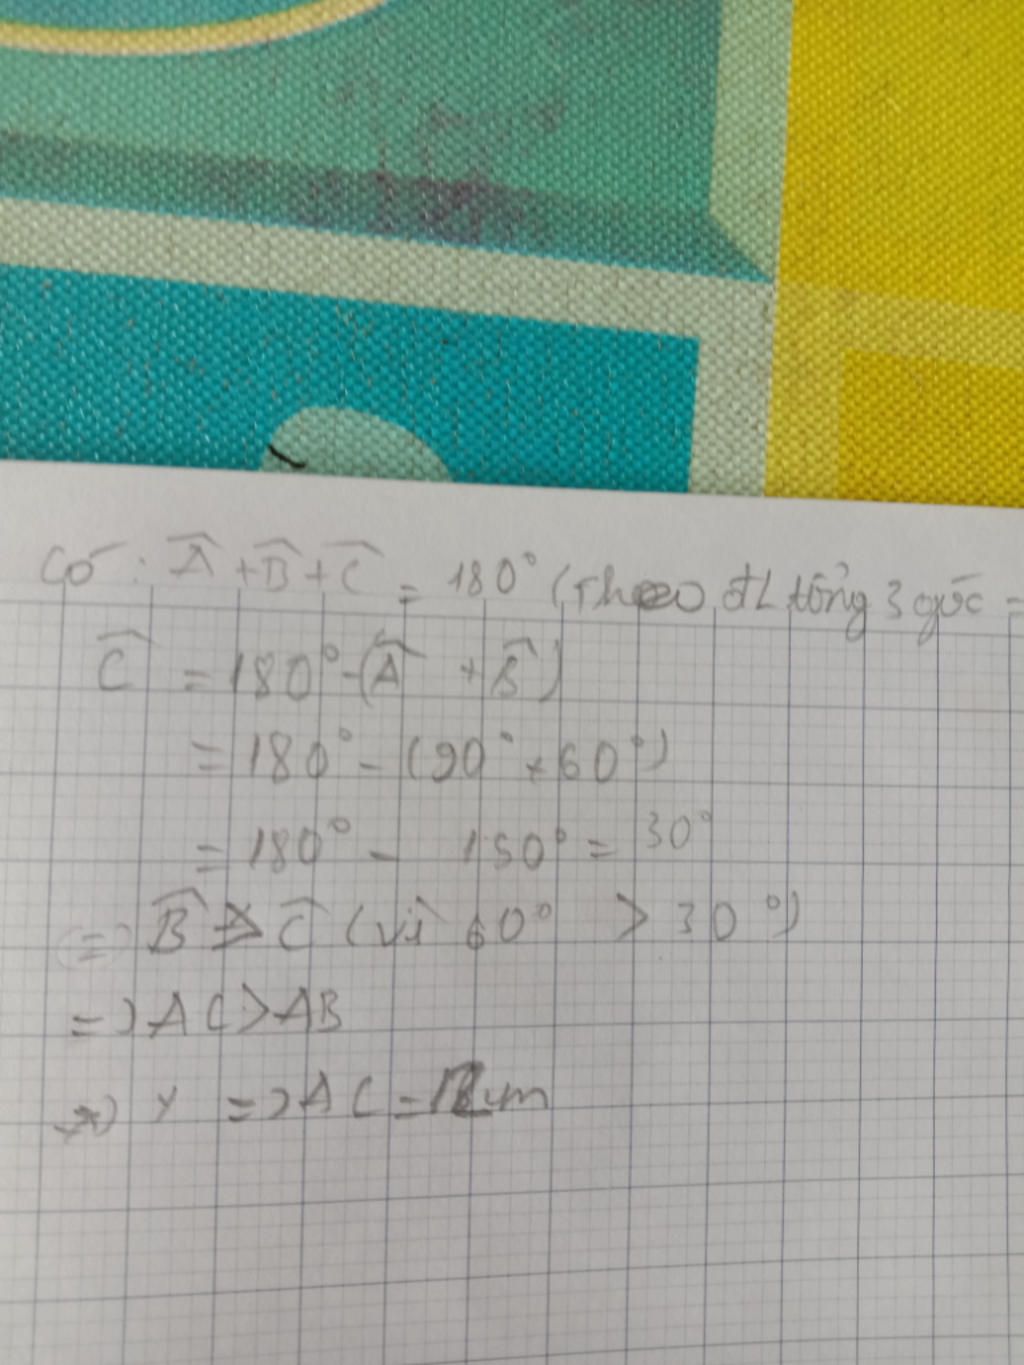 Có : Â + B̂ + Ĉ = 180° (Theo đL tổng 3 góc =
Ĉ = 180° - (Â + B̂)
= 180° - (90° + 60°)
= 180° - 150° = 30°
=> B̂ > Ĉ (vì 60° > 30°)
=> AC > AB
=> AC = cm